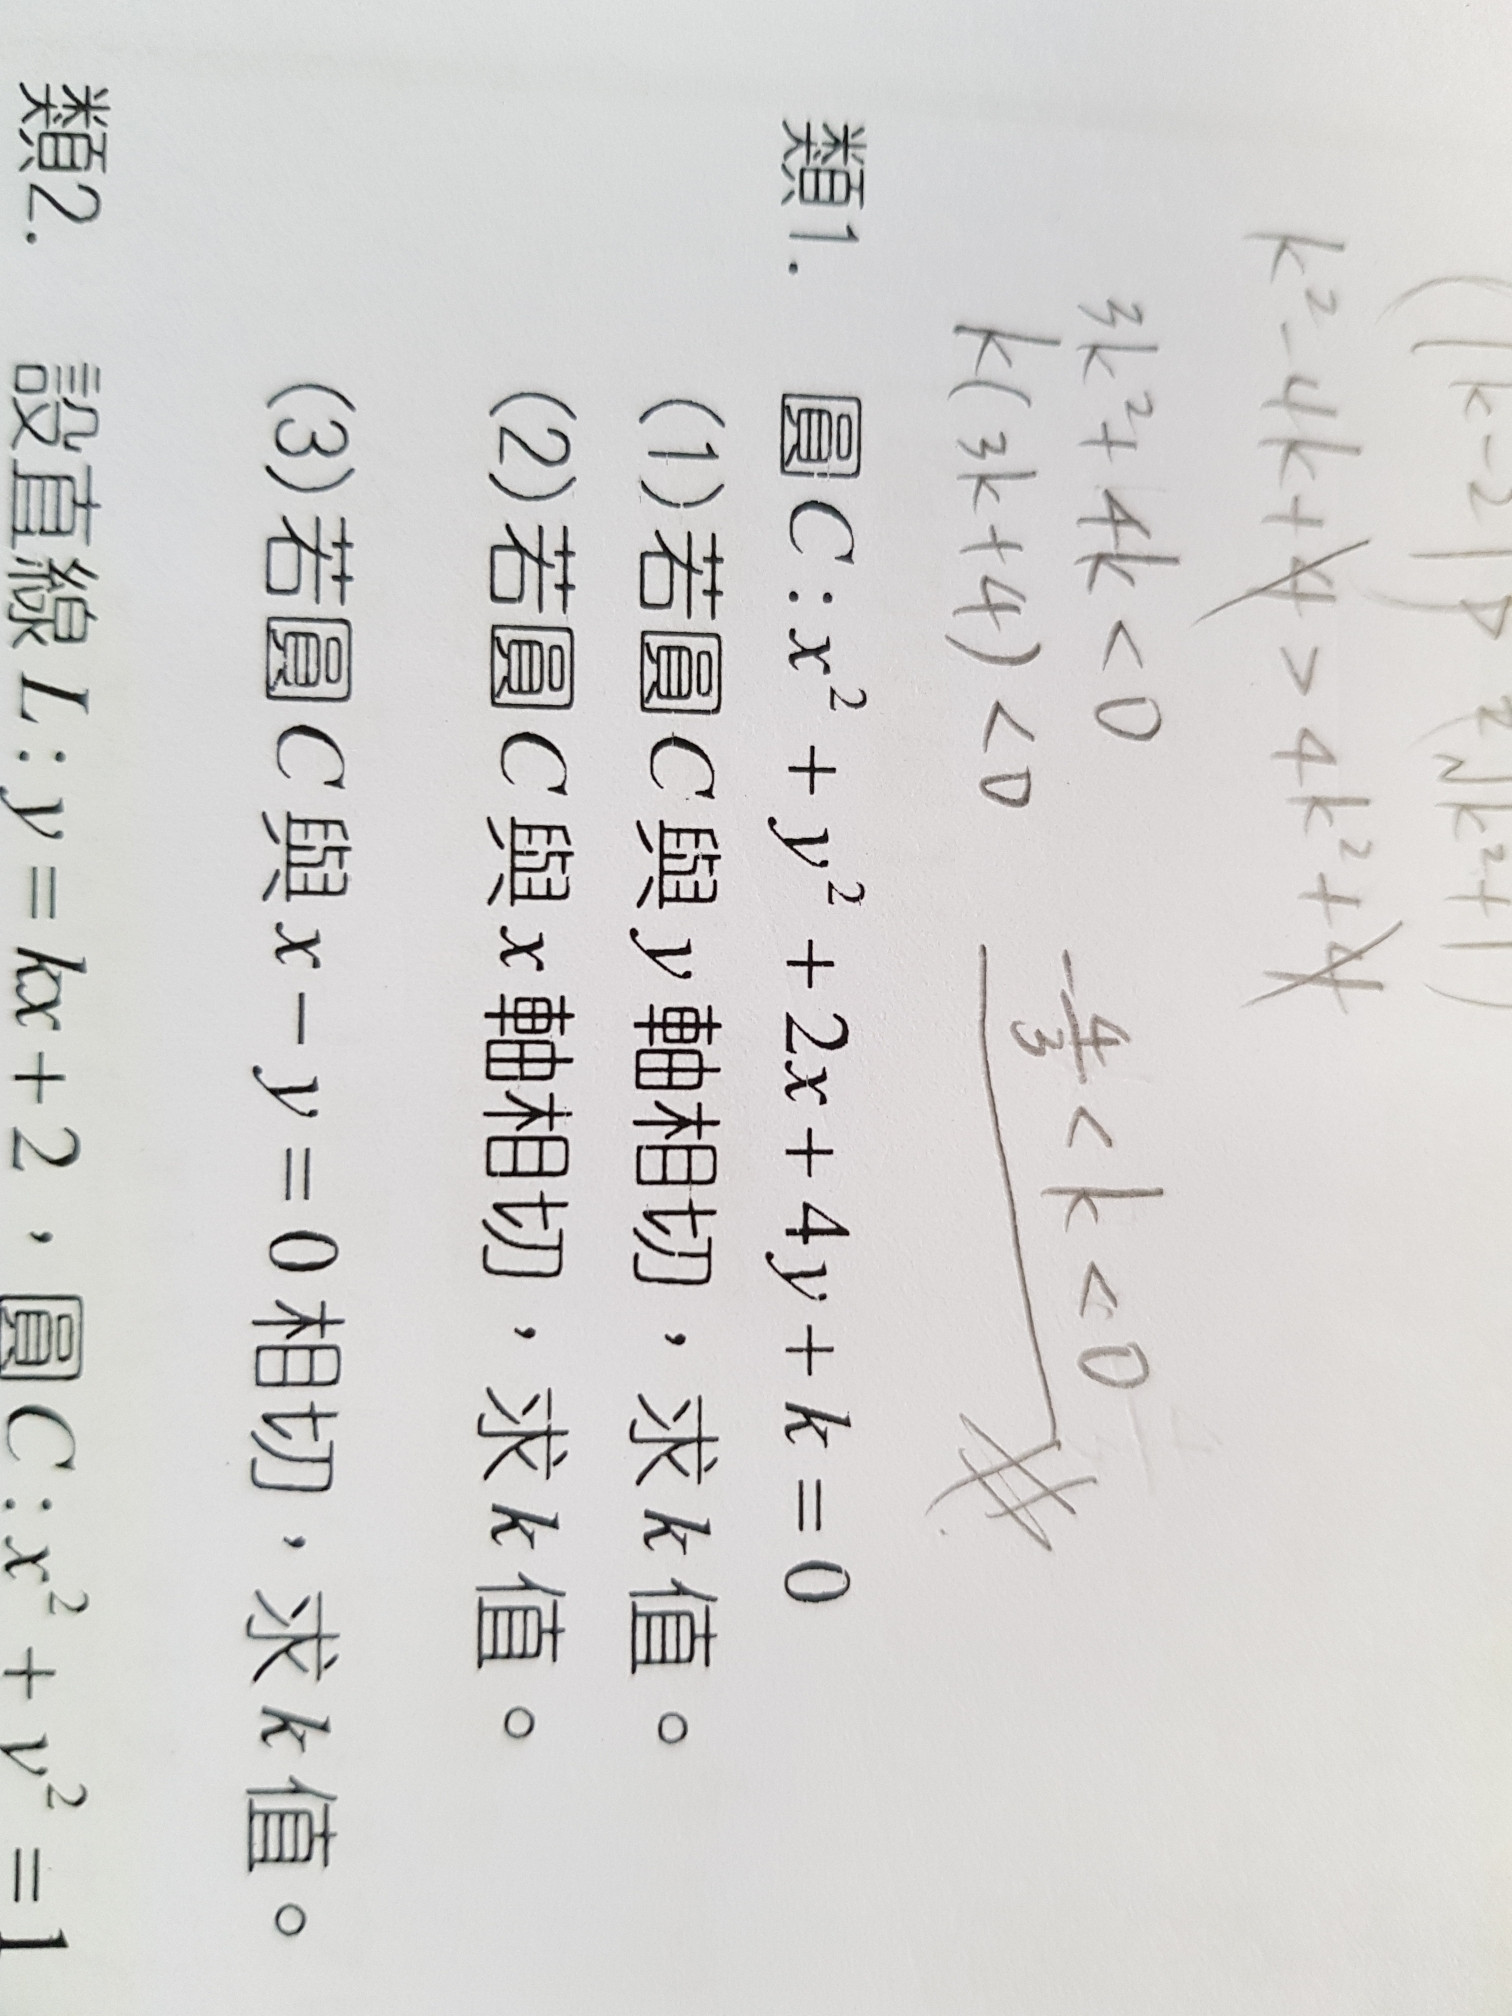 (|k-2|)
k²-4k+4 > 4k²+4
3k²+4k<0
k(3k+4)<0
-4/3<k<0
類1. 圓C:x²+y²+2x+4y+k=0
(1)若圓C與y軸相切,求k值。
(2)若圓C與x軸相切,求k值。
(3)若圓C與x-y=0相切,求k值。
類2. 設直線L:y=kx+2,圓C:x²+y²=1